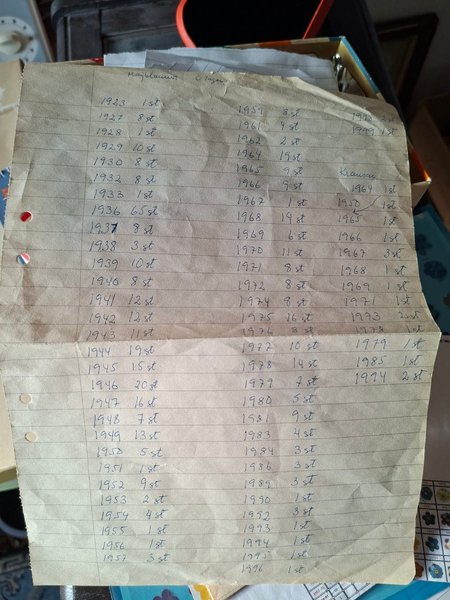 Majblommor
1923 1 st
1927 8 st
1928 1 st
1929 10 st
1930 8 st
1932 8 st
1933 1 st
1936 65 st
1937 8 st
1938 3 st
1939 10 st
1940 8 st
1941 12 st
1942 12 st
1943 11 st
1944 19 st
1945 15 st
1946 20 st
1947 16 st
1948 7 st
1949 13 st
1950 5 st
1951 1 st
1952 9 st
1953 2 st
1954 4 st
1955 1 st
1956 1 st
1957 3 st
1959 8 st
1961 9 st
1962 2 st
1964 19 st
1965 9 st
1966 9 st
1967 1 st
1968 19 st
1969 6 st
1970 11 st
1971 8 st
1972 8 st
1974 8 st
1975 16 st
1976 st
1977 10 st
1978 14 st
1979 7 st
1980 5 st
1981 9 st
1983 4 st
1984 3 st
1986 3 st
1989 3 st
1990 1 st
1992 3 st
1993 1 st
1994 1 st
1995 1 st
1996 1 st
1998 2 st
1999 1 st
Kransar
1964 1 st
1950 1 st
1965 1 st
1966 1 st
1967 3 st
1968 1 st
1969 1 st
1971 1 st
1993 2 st
1978 1 st
1979 1 st
1985 1 st
1994 2 st